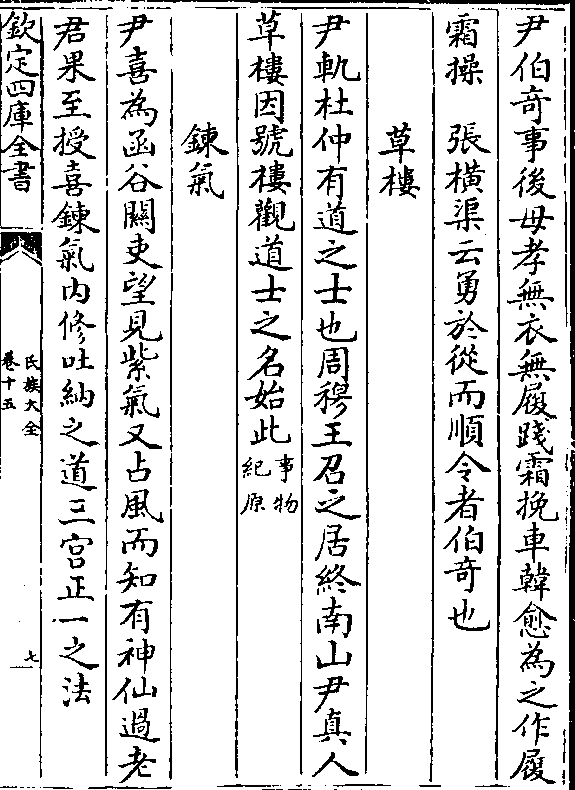 尹伯奇事後母孝無衣無履踐霜挽車韓愈為之作履
霜操　張橫渠云勇於從而順令者伯奇也
草樓
尹軌杜仲有道之士也周穆王召之居終南山尹真人
草樓因號樓觀道士之名始此事物紀原
鍊氣
尹喜為函谷關吏望見紫氣又占風而知有神仙過老
君果至授喜鍊氣內修吐納之道三宮正一之法
欽定四庫全書
氏族大全
卷十五
七